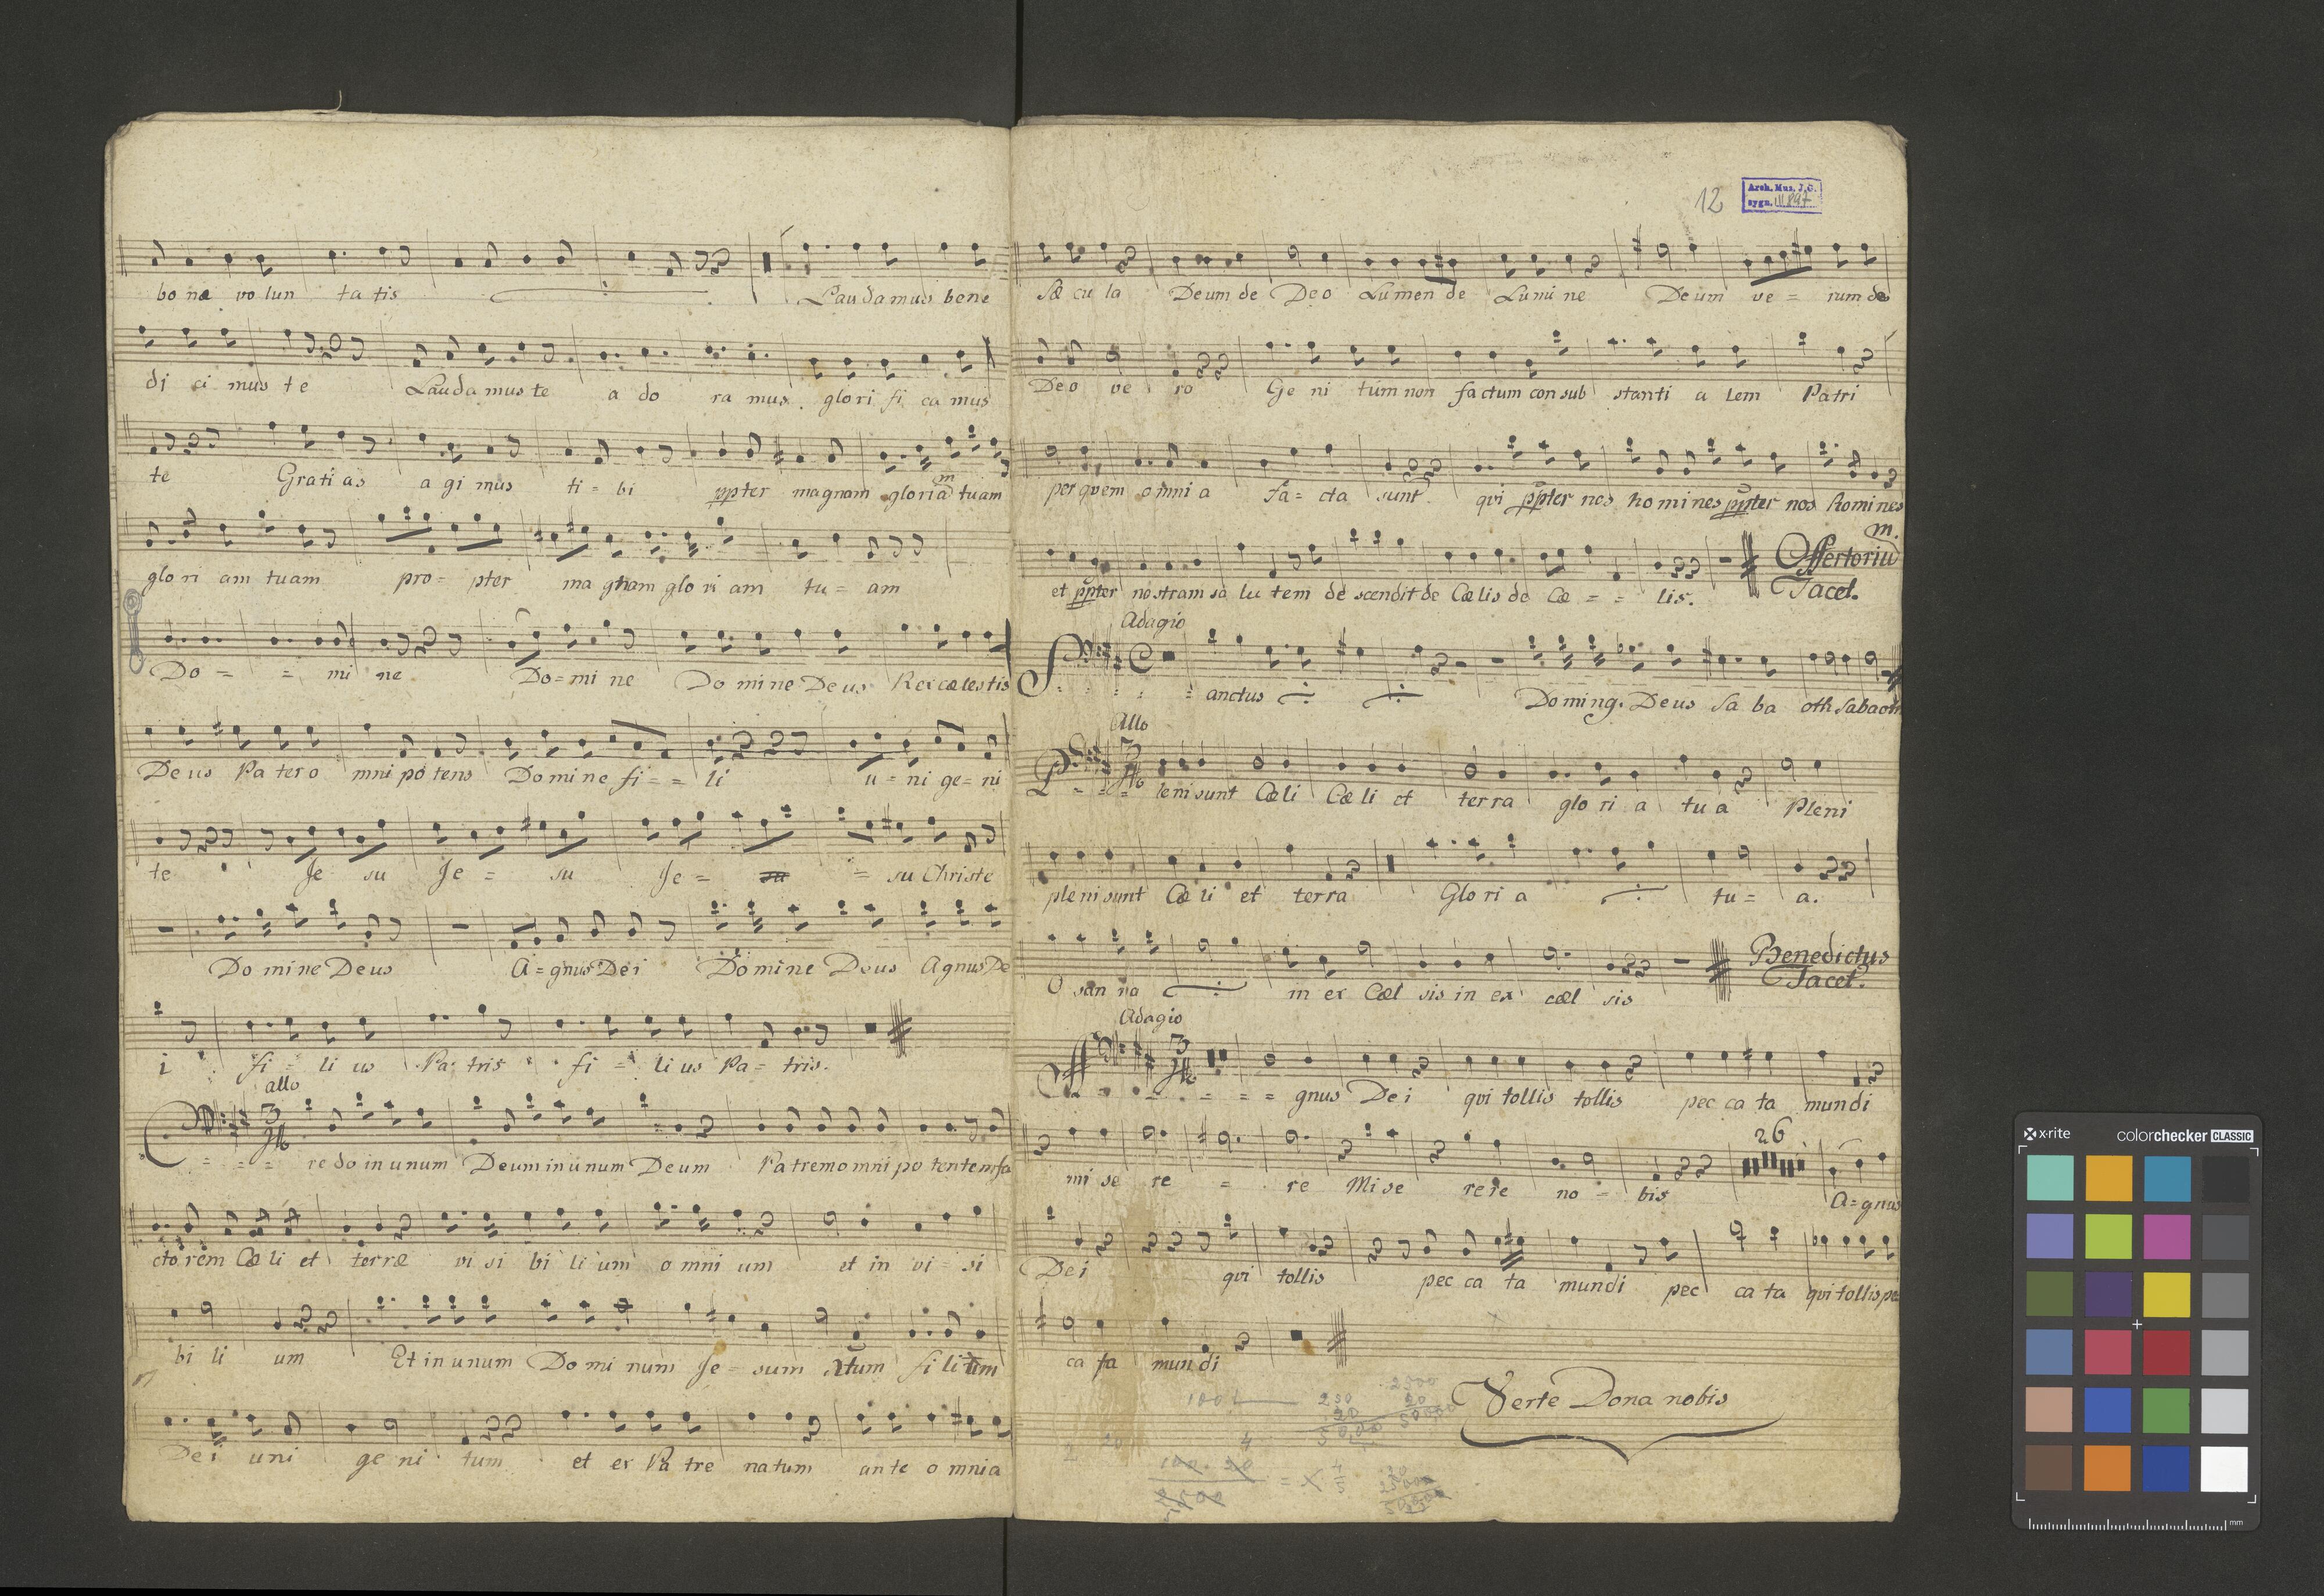 bo næ vo lun ta tis Lau da mus bene
di ci mus te Lauda mus te a do ra mus. glo ri fi ca mus
te Grati as a gi mus ti = bi ppter magnam gloriam tuam
glo ri am tuam pro = pter ma gnam glo ri am tu = am
Do = = mi ne Do = mi ne Do mi ne De us Rex cælestis
De us Pa ter o mni po tens Do mi ne fi = = li u = ni ge = ni
te Je su Je = su Je = su = su Christe
Do mi ne Deus A = gnus Dei Domine Deus Agnus De
i fi = li us Pa tris fi = li us Pa = tris.
allo
C = = = re do in unum Deum in unum Deum Patrem omni po tentem fa
cto rem Cæ li et terræ vi si bi li um o mni um et in vi = si
bi li um Et in unum Do mi num Je = sum Xtum fi li um
De i uni ge ni tum et ex Pa tre natum ante o mnia
12 Arch. Mus. J.G.
sygn. III 897
Sæ cu la Deum de Deo Lumen de Lumi ne Deum ve = rum de
Deo ve ro Ge ni tum non factum con sub stanti a lem Patri
per quem omni a fa = cta sunt. qui ppter nos ho mi nes ppter nos homines
et ppter nostram sa lu tem de scendit de Cælis de Cæ = = lis. Offertorium
Tacet.
Adagio
S = = = = = anctus Doming. Deus Sa ba oth Sabaoth
Allo
P = = = leni sunt Cæ li Cæ li et terra glo ri a tu a Pleni
pleni sunt Cæ li et terra Glo ri a tu = a.
O san na in ex Cæl sis in ex cæl sis Benedictus
Tacet.
Adagio
A = = = = = = gnus Dei qui tollis tollis pec ca ta mundi
mi se re = re Mise rere no = bis 26 A = gnus
Dei qui tollis pec ca ta mundi pec ca ta qui tollis pec
ca ta mun di
Verte Dona nobis